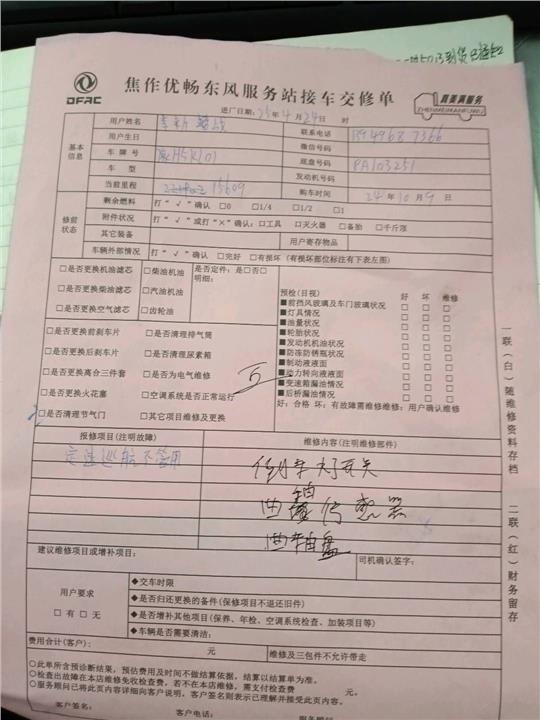 DFAC
焦作优畅东风服务站接车交修单
真美满服务
ZHENMEIMANFUWU
进厂日期: 25年 4月24日 时
基本信息
用户姓名
联系电话
用户生日
微信号码
车牌号
底盘号码 PA103251
车型
发动机号码
当前里程 15609
购车时间 24年10月9日
修前状态
剩余燃料 打“√”确认 □0 □1/4 □1/2 □1
附件状况 打“√”或打“×”确认: □工具 □灭火器 □备胎 □千斤顶
其它装备
用户寄存物品
车辆外部情况 打“√”确认 □完好 □有损坏(有损坏部位标注有下表左图)
□是否更换机油滤芯 □柴油机油
□是否更换柴油滤芯 □汽油机油
□是否更换空气滤芯 □齿轮油
是否定件: 是□否□
明细:
□是否更换前刹车片 □是否清理排气筒
□是否更换后刹车片 □是否清理尿素箱
□是否更换离合三件套 □是否为电气维修
□是否更换火花塞 □空调系统是否正常运行
□是否清理节气门 □其它项目维修及更换
预检(目视) 好 坏 维修
■前挡风玻璃及车门玻璃状况
■灯具情况
■油量状况
■轮胎状况
■发动机机油状况
■防冻防锈瓶状况
■制动液液面
■动力转向液液面
■变速箱漏油情况
■后桥漏油情况
好: 合格 坏: 有故障需维修维修: 用户确认维修
报修项目(注明故障)
维修内容(注明维修部件)
定速巡航不管用
倒车灯开关
曲轴传感器
曲轴盘
建议维修项目或增补项目:
司机确认签字:
用户要求
□有 □无
◆交车时限
◆是否归还更换的备件(保修项目不退还旧件)
◆是否增补其他项目(保养、年检、空调系统检查、加装项目等)
◆车辆是否需要清洁:
费用合计(客户): 元
维修及三包件不允许带走
○此单所含预诊断结果, 预估费用及时间不做结算依据, 结算以结算单为准。
○检查出故障在本店维修免收检查费, 若不在本店维修, 需支付检查费 元。
○服务顾问已将此页内容详细向客户说明, 客户签名则表示已理解并接受此页内容。
客户签名:
客户电话:
一联(白)随维修资料存档
二联(红)财务留存